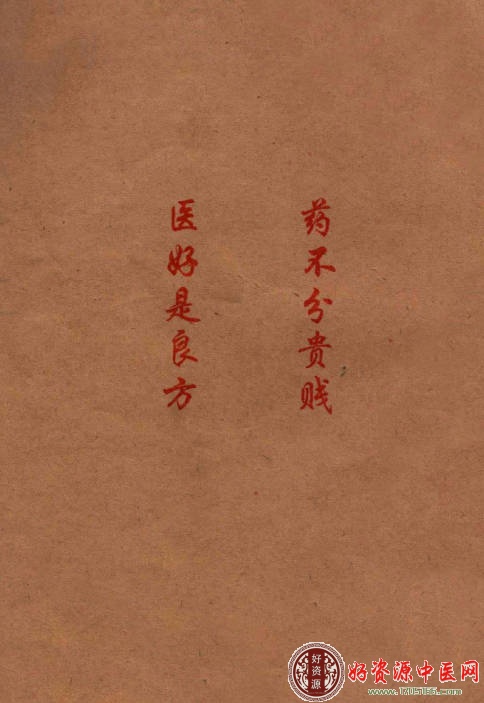 药不分贵贱
医好是良方
好资源
好资源中医网